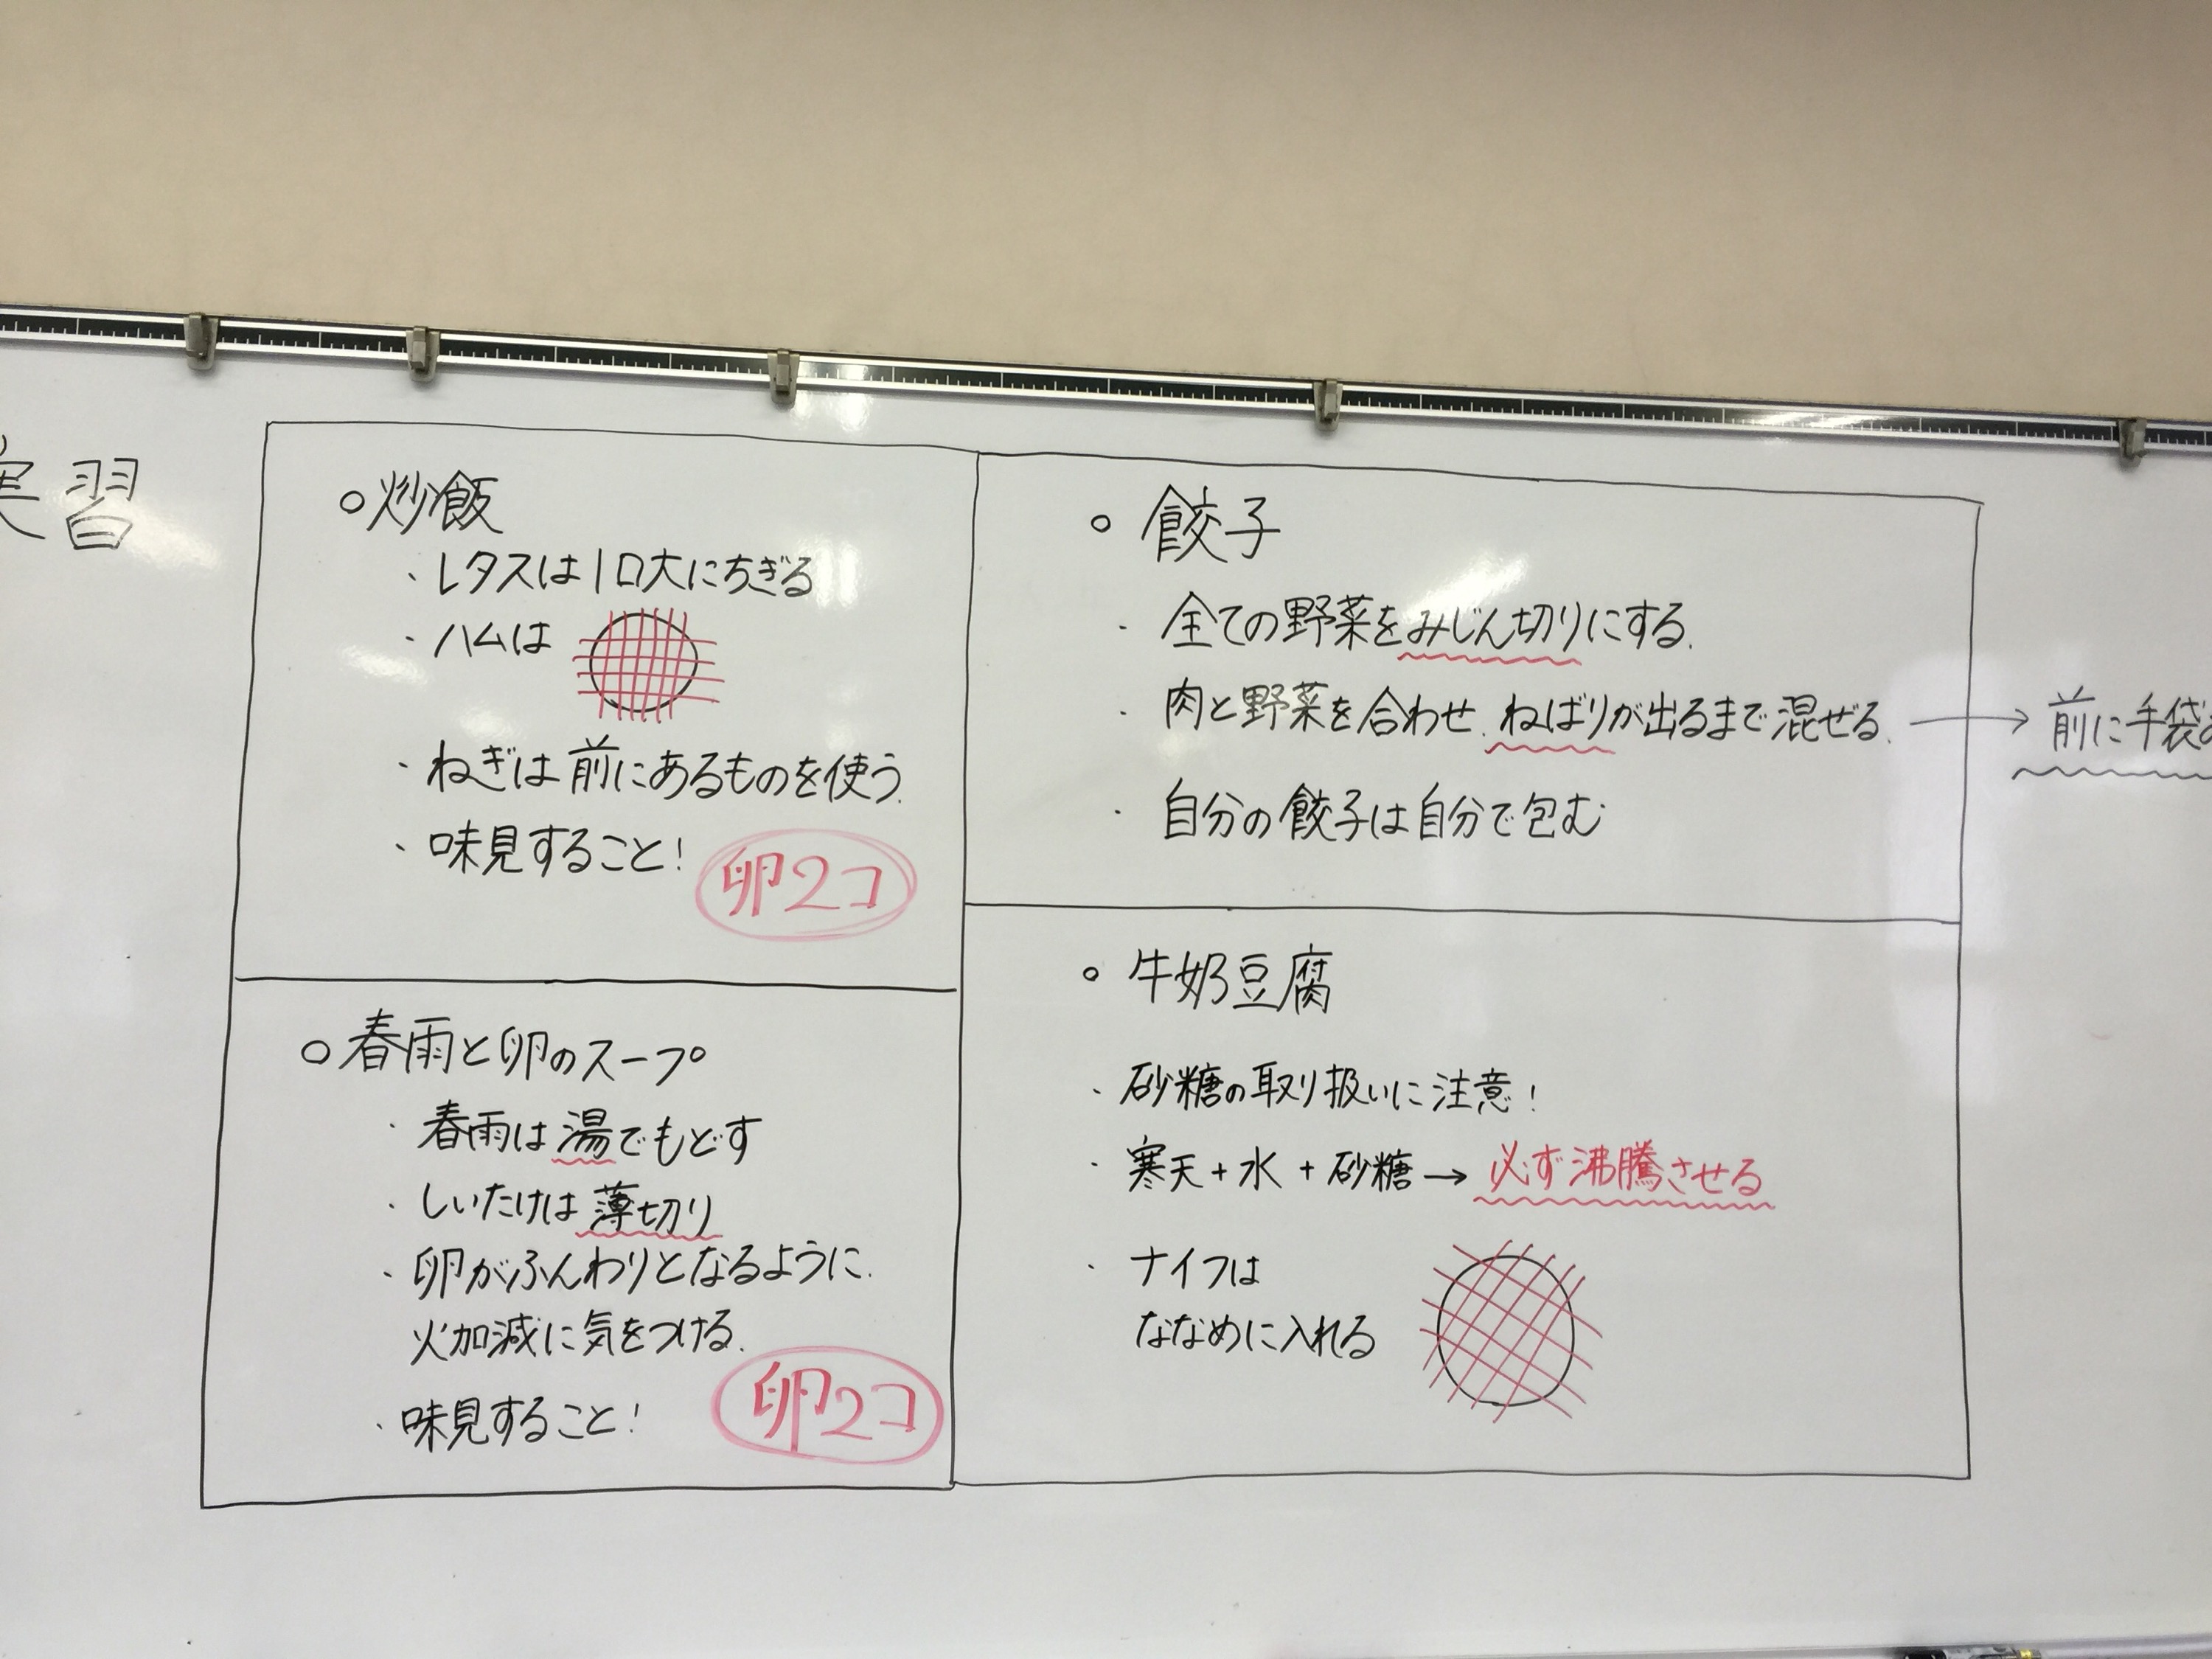 実習
○炒飯
・レタスは1口大にちぎる
・ハムは
・ねぎは前にあるものを使う.
・味見すること!
卵2コ
○春雨と卵のスープ
・春雨は湯でもどす
・しいたけは薄切り
・卵がふんわりとなるように.
火加減に気をつける.
・味見すること!
卵2コ
○餃子
・全ての野菜をみじん切りにする.
・肉と野菜を合わせ、ねばりが出るまで混ぜる. → 前に手袋
・自分の餃子は自分で包む
○牛奶豆腐
・砂糖の取り扱いに注意!
・寒天+水+砂糖→必ず沸騰させる
・ナイフは
ななめに入れる